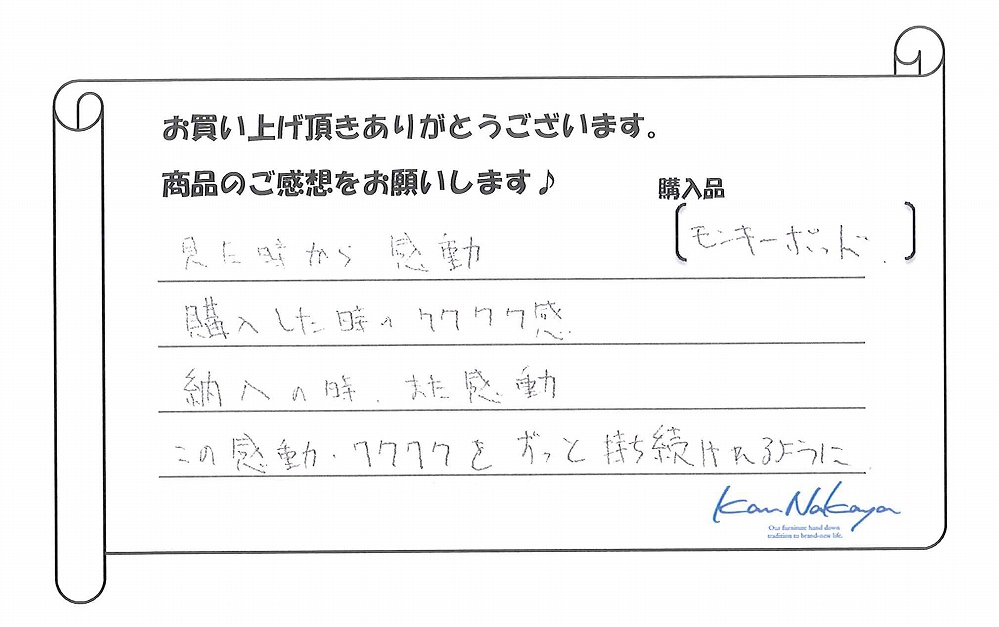 お買い上げ頂きありがとうございます。
商品のご感想をお願いします♪
購入品
モンキーポッド.
見た時から 感動
購入した時のワクワク感.
納入の時. また感動
この感動・ワクワクを ずっと持ち続けれるように.
Kan Nakaya
Our furniture hand down
tradition to brand-new life.